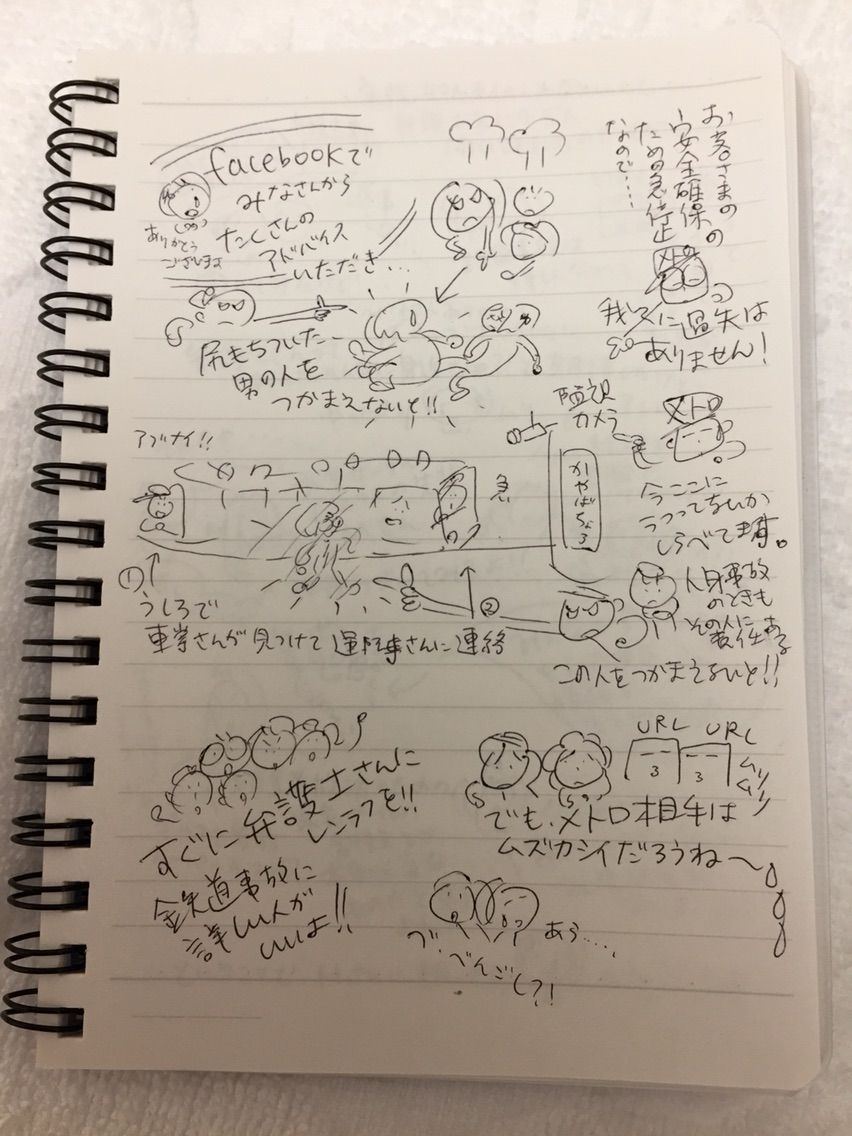 facebookで
みなさんから
たくさんの
アドバイス
いただき...
ありがとう
ございます
お客さまの
安全確保の
ための急停止
なので......
メトロ
我々に過失は
ありません!
尻もちついた
男の人を
つかまえないと!!
カメラ
メトロ
かやばちょう
今ここに
うつってないか
しらべてます。
アブナイ!!
急
①
うしろで
車掌さんが見つけて運転手さんに連絡
②
人身事故
のときも
その人に
責任ある
この人をつかまえないと!!
すぐに弁護士さんに
レンラクを!!
鉄道事故に
詳しい人が
いいよ!!
URL URL
ムリ
ムリ
でも、メトロ相手は
ムズカシイだろうね〜
あら.....
べんごし?!